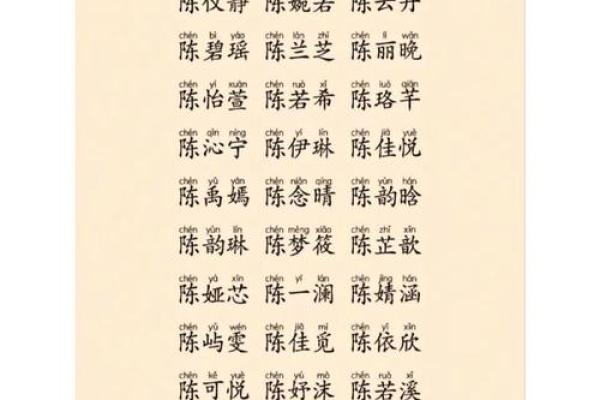 陈仪静 陈婉若 陈云丹
chén bì yáo chén lán zhī chén lì wǎn
陈碧瑶 陈兰芝 陈丽晚
chén yí xuān chén ruò xī chén luò qiān
陈怡萱 陈若希 陈珞芊
chén qìn níng chén yī lín chén jiā yuè
陈沁宁 陈伊琳 陈佳悦
chén yǔ yān chén niàn qíng chén yùn hán
陈禹嫣 陈念晴 陈韵晗
chén yùn lín chén mèng xiǎo chén zhǐ xīn
陈韵琳 陈梦筱 陈芷歆
chén yà xīn chén yī lán chén jìng hán
陈娅芯 陈一澜 陈婧涵
chén yǔ wén chén jiā mì chén yī xīn
陈屿雯 陈佳觅 陈依欣
chén kě yuè chén yú mò chén ruò xī
陈可悦 陈妤沫 陈若溪